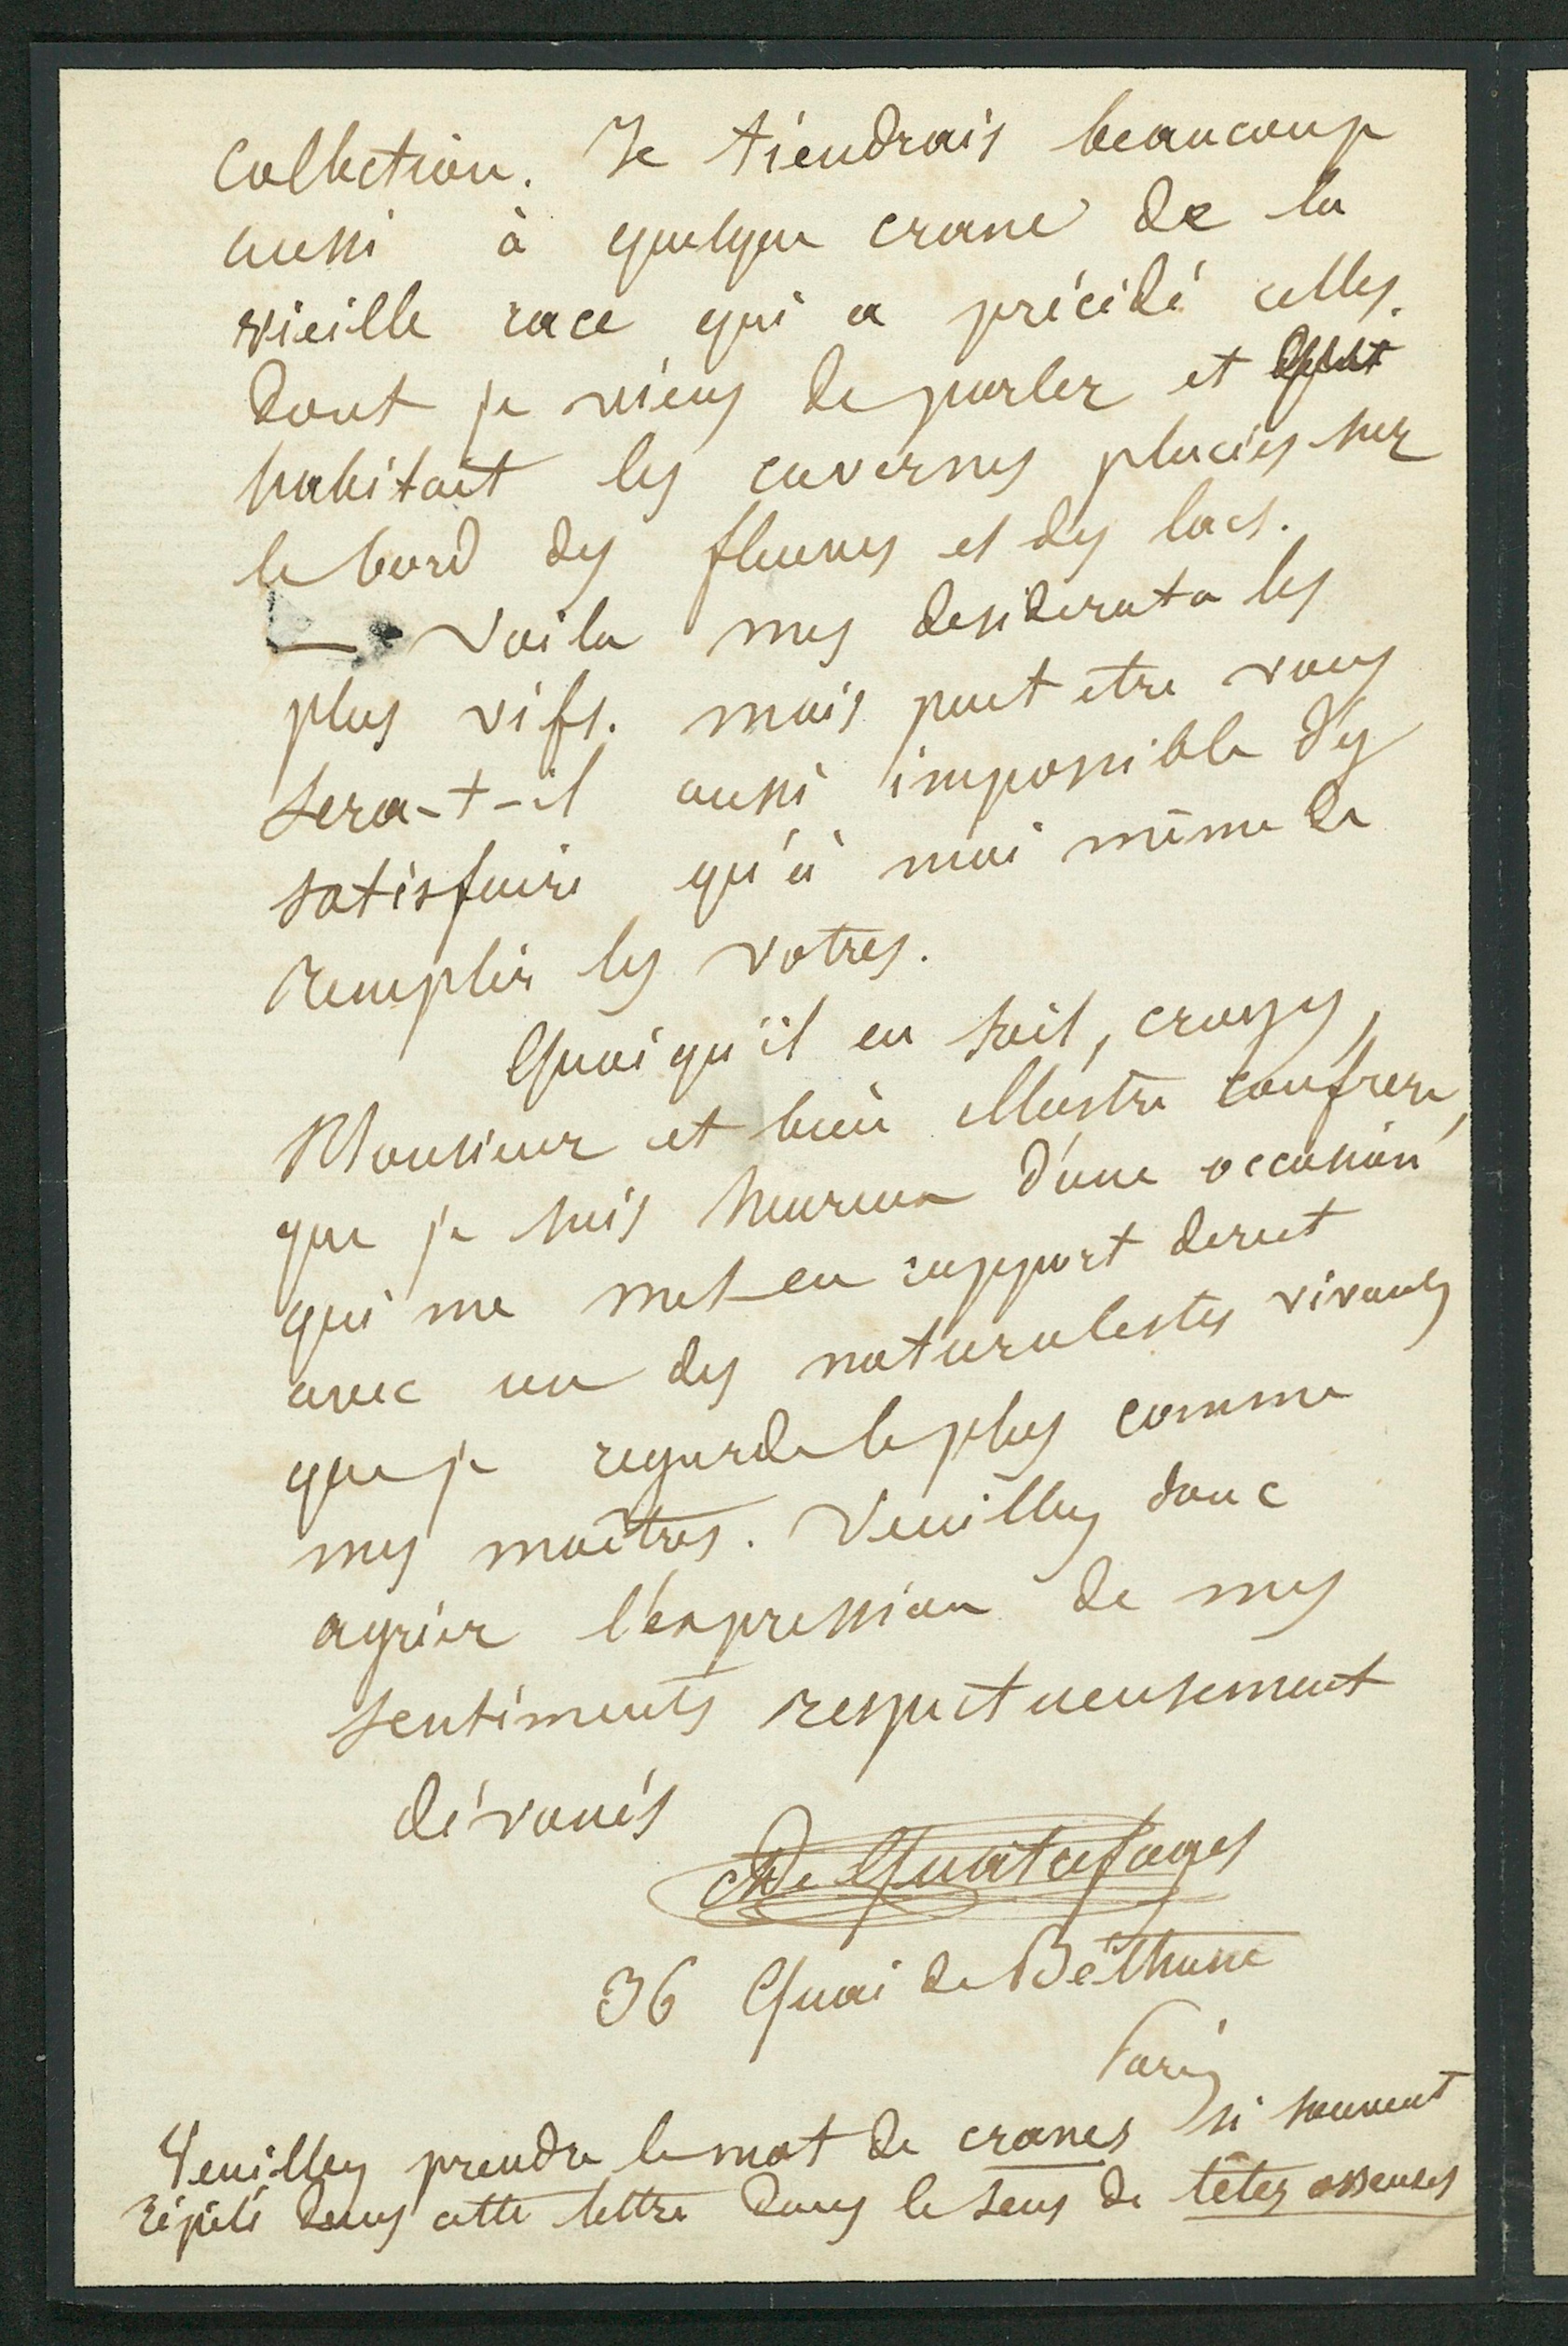 Collection. Je tiendrais beaucoup
aussi à quelque crane de la
vieille race qui a précédé celles
dont je viens de parler et
habitait les cavernes placées sur
le bord des fleuves et des lacs.
— Voila mes desiderata les
plus vifs. mais peut etre vous
sera-t-il aussi impossible d'y
satisfaire qu'à moi même de
remplir les votres.
Quoiqu'il en soit, croyez,
Monsieur et bien illustre confrere,
que je suis heureux d'une occasion
qui me met en rapport direct
avec un des naturalistes vivants
que je regarde le plus comme
mes maîtres. Veuillez donc
agréer l'expression de mes
sentiments respectueusement
dévoués
A de Quatrefages
36 Quai de Béthune
Paris
Veuillez prendre le mot de cranes si souvent
répété dans cette lettre dans le sens de têtes osseuses